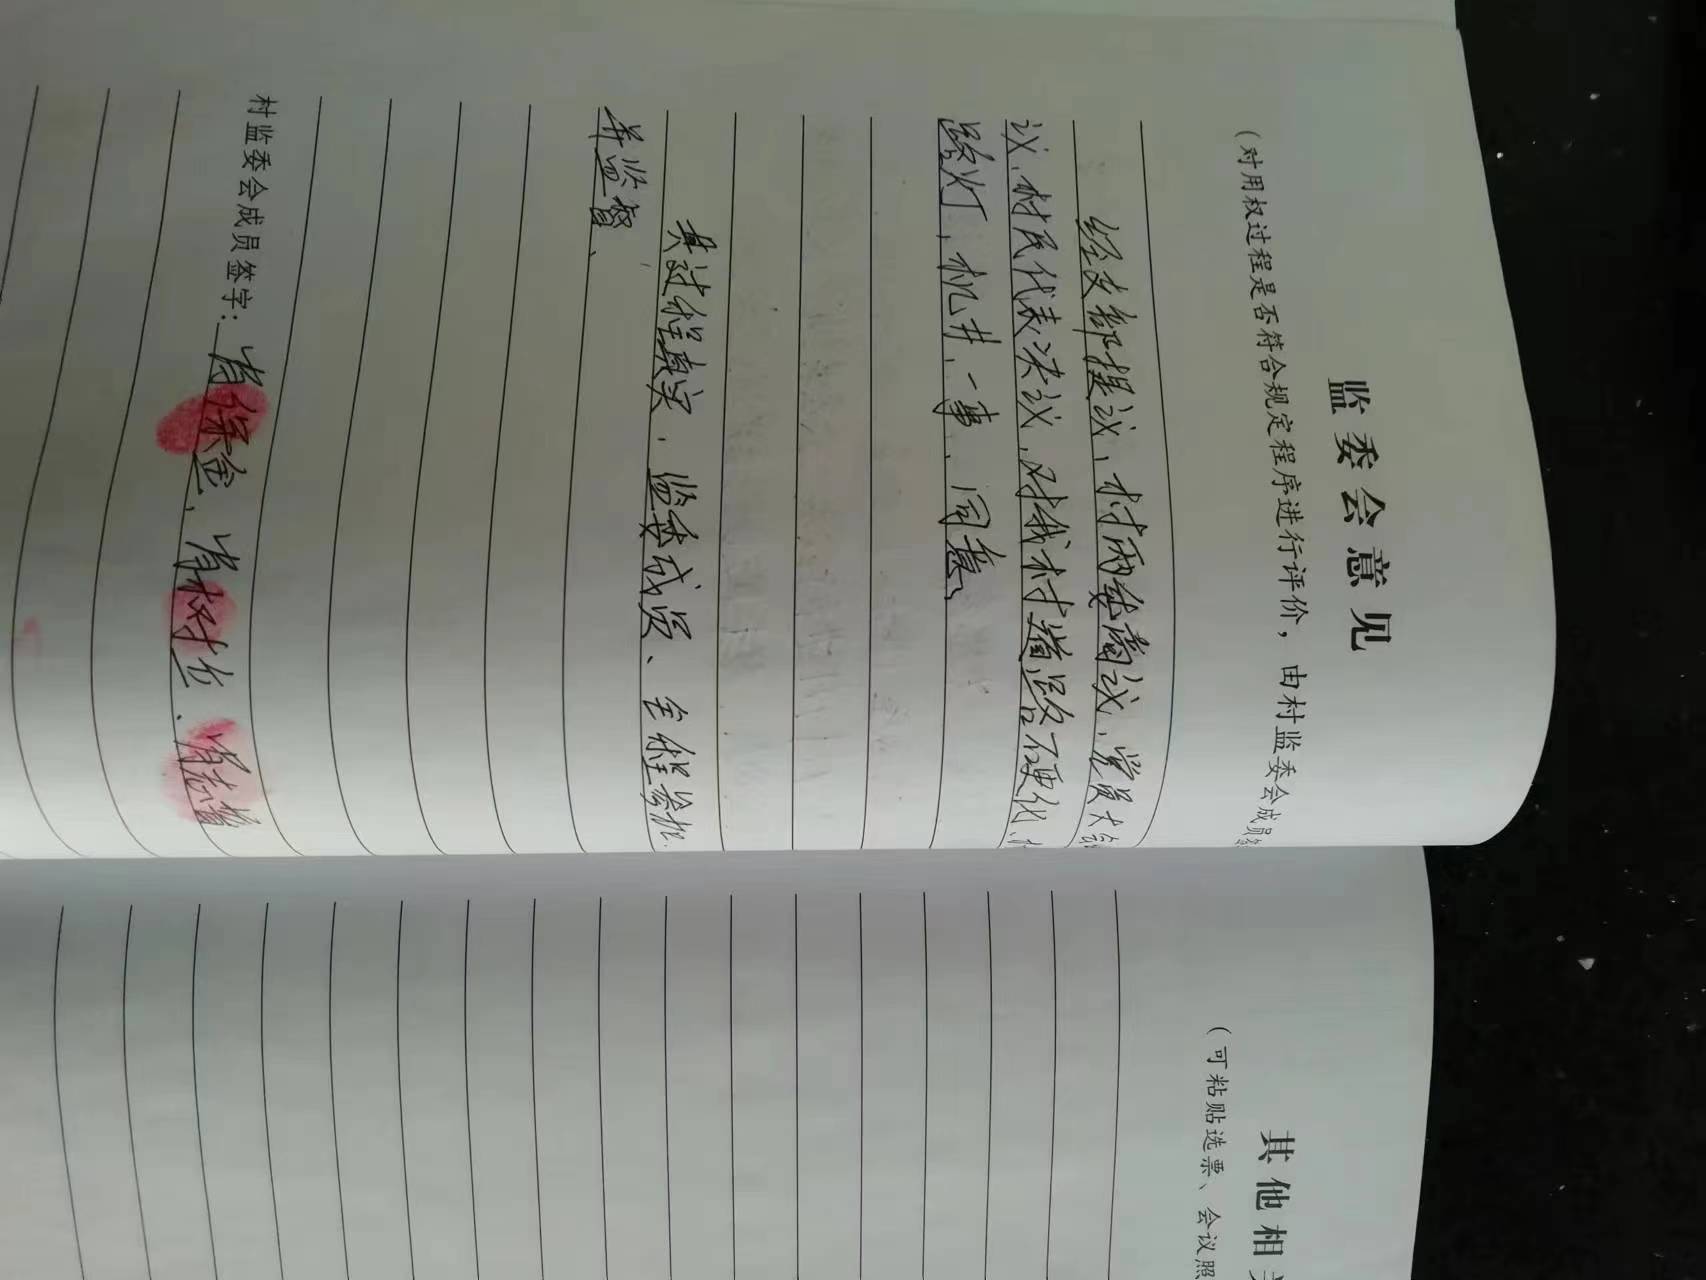 监委会意见
(对用权过程是否符合规定程序进行评价，由村监委会成员签
经支部提议，村两委商议，党员大会
议，村民代表决议，对我村道路硬化、
路灯，机井，一事，同意、
其过程真实，监委成员、全程参
并监督、
村监委会成员签字：肖保金、肖树 、肖志
其他相关
(可粘贴选票、会议照